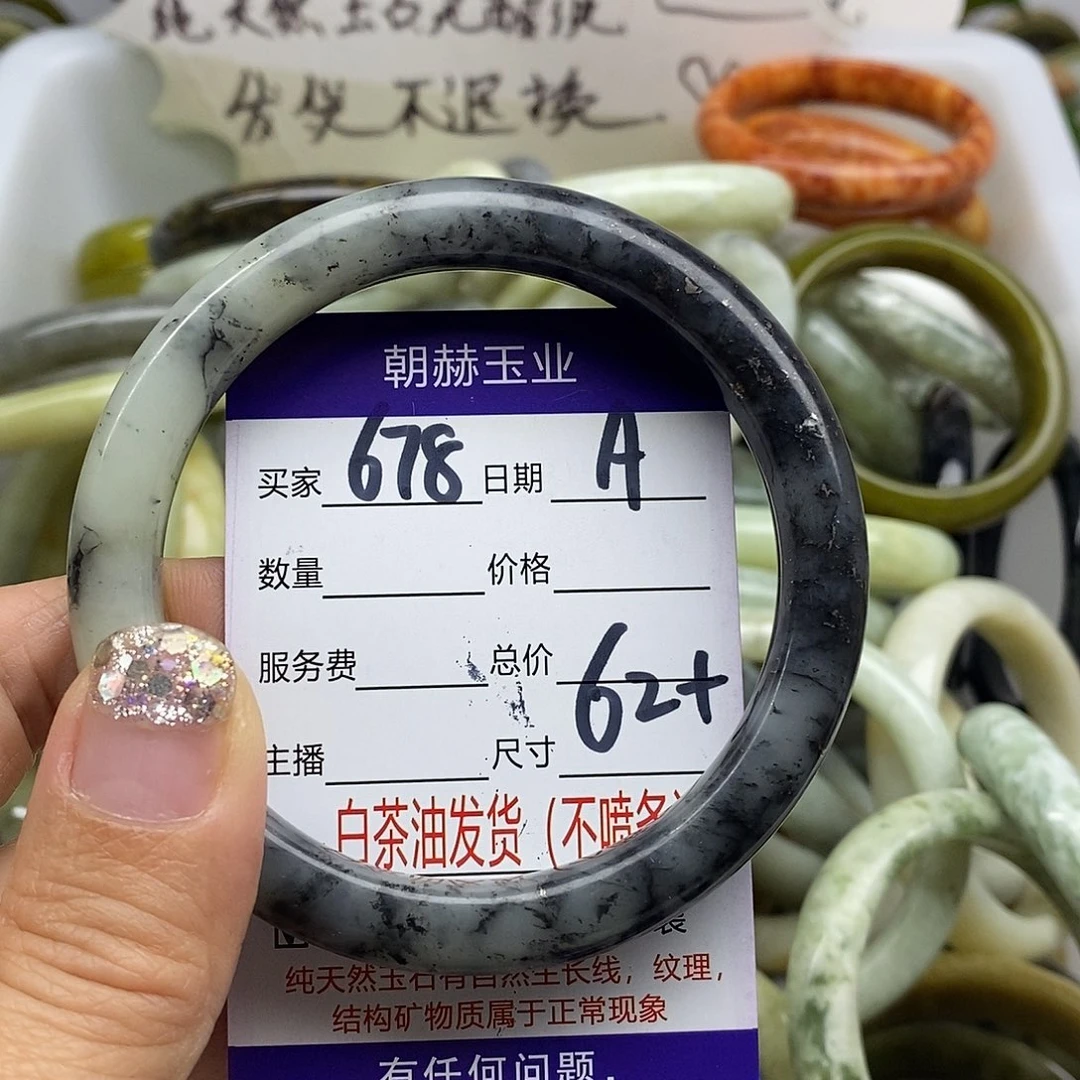 纯天然玉石无瑕疵
售出不退换.
朝赫玉业
买家 678 日期 A
数量 价格
服务费 总价
主播 尺寸 62+
白茶油发货（不喷
纯天然玉石有自然生长线，纹理，
结构矿物质属于正常现象
有任何问题，